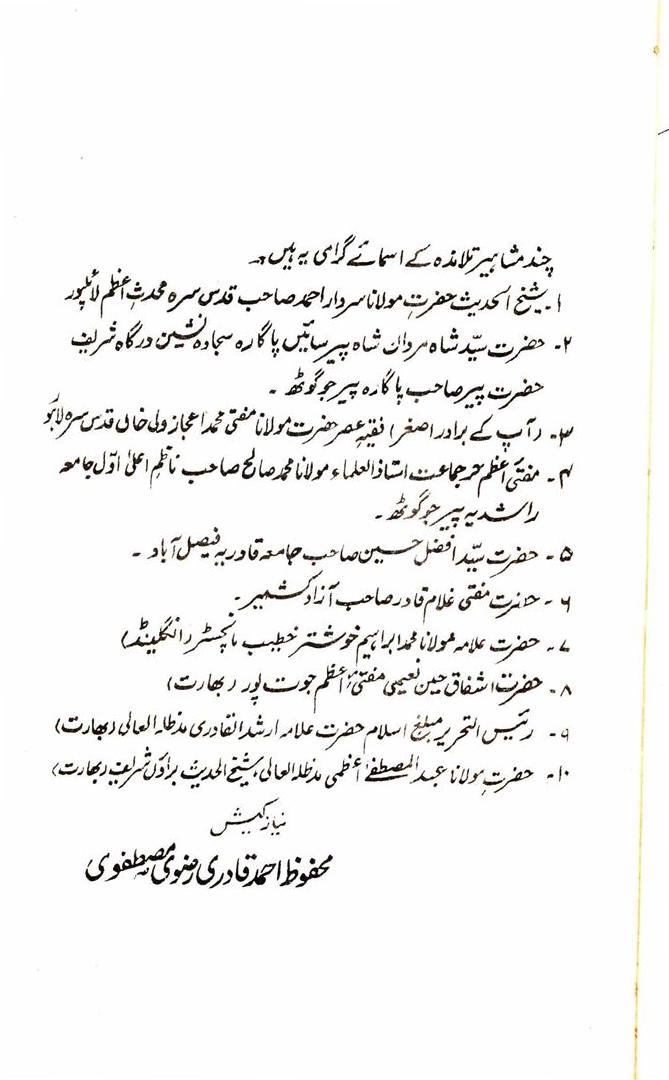 چند مشاہیر تلامذہ کے اسمائے گرامی یہ ہیں۔
۱۔ شیخ الحدیث حضرت مولانا سردار احمد صاحب قدس سرہ محدث اعظم لائلپور
۲۔ حضرت سیّد شاہ مردان شاہ پیر سائیں پاگارہ سجادہ نشین درگاہ شریف
حضرت پیر صاحب پاگارہ پیر جوگوٹھ ۔
۳۔ (آپ کے برادر اصغر) فقیہِ عصر حضرت مولانا مفتی محمد اعجاز ولی خاں قدس سرہ لاہور
۴۔ مفتیٔ اعظم حر جماعت استاذ العلماء مولانا محمد صالح صاحب ناظمِ اعلیٰ اوّل جامعہ
راشدیہ پیر جوگوٹھ ۔
۵۔ حضرت سیّد افضل حسین صاحب جامعہ قادریہ فیصل آباد ۔
۶۔ حضرت مفتی غلام قادر صاحب آزاد کشمیر ۔
۷۔ حضرت علامہ مولانا محمد ابراہیم خوشتر خطیب مانچسٹر (انگلینڈ)
۸۔ حضرت اشفاق حسین نعیمی مفتیٔ اعظم جوت پور (بھارت)
۹۔ رئیس التحریر مبلغِ اسلام حضرت علامہ ارشد القادری مدظلہ العالی (بھارت)
۱۰۔ حضرت مولانا عبد المصطفےٰ اعظمی مدظلہ العالی، شیخ الحدیث براؤں شریف (بھارت)
نیاز کیش
محفوظ احمد قادری رضوی مصطفوی